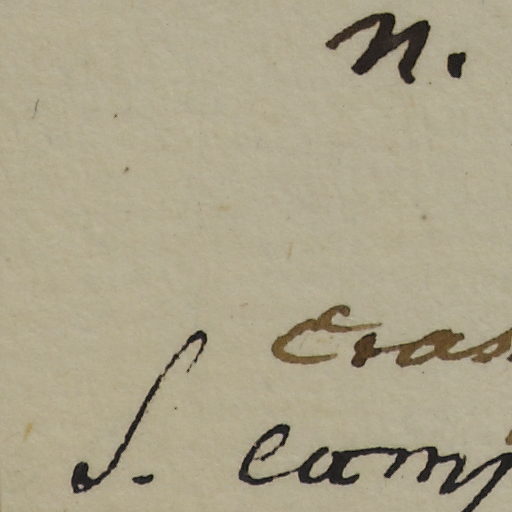 n.
cras
S. camp